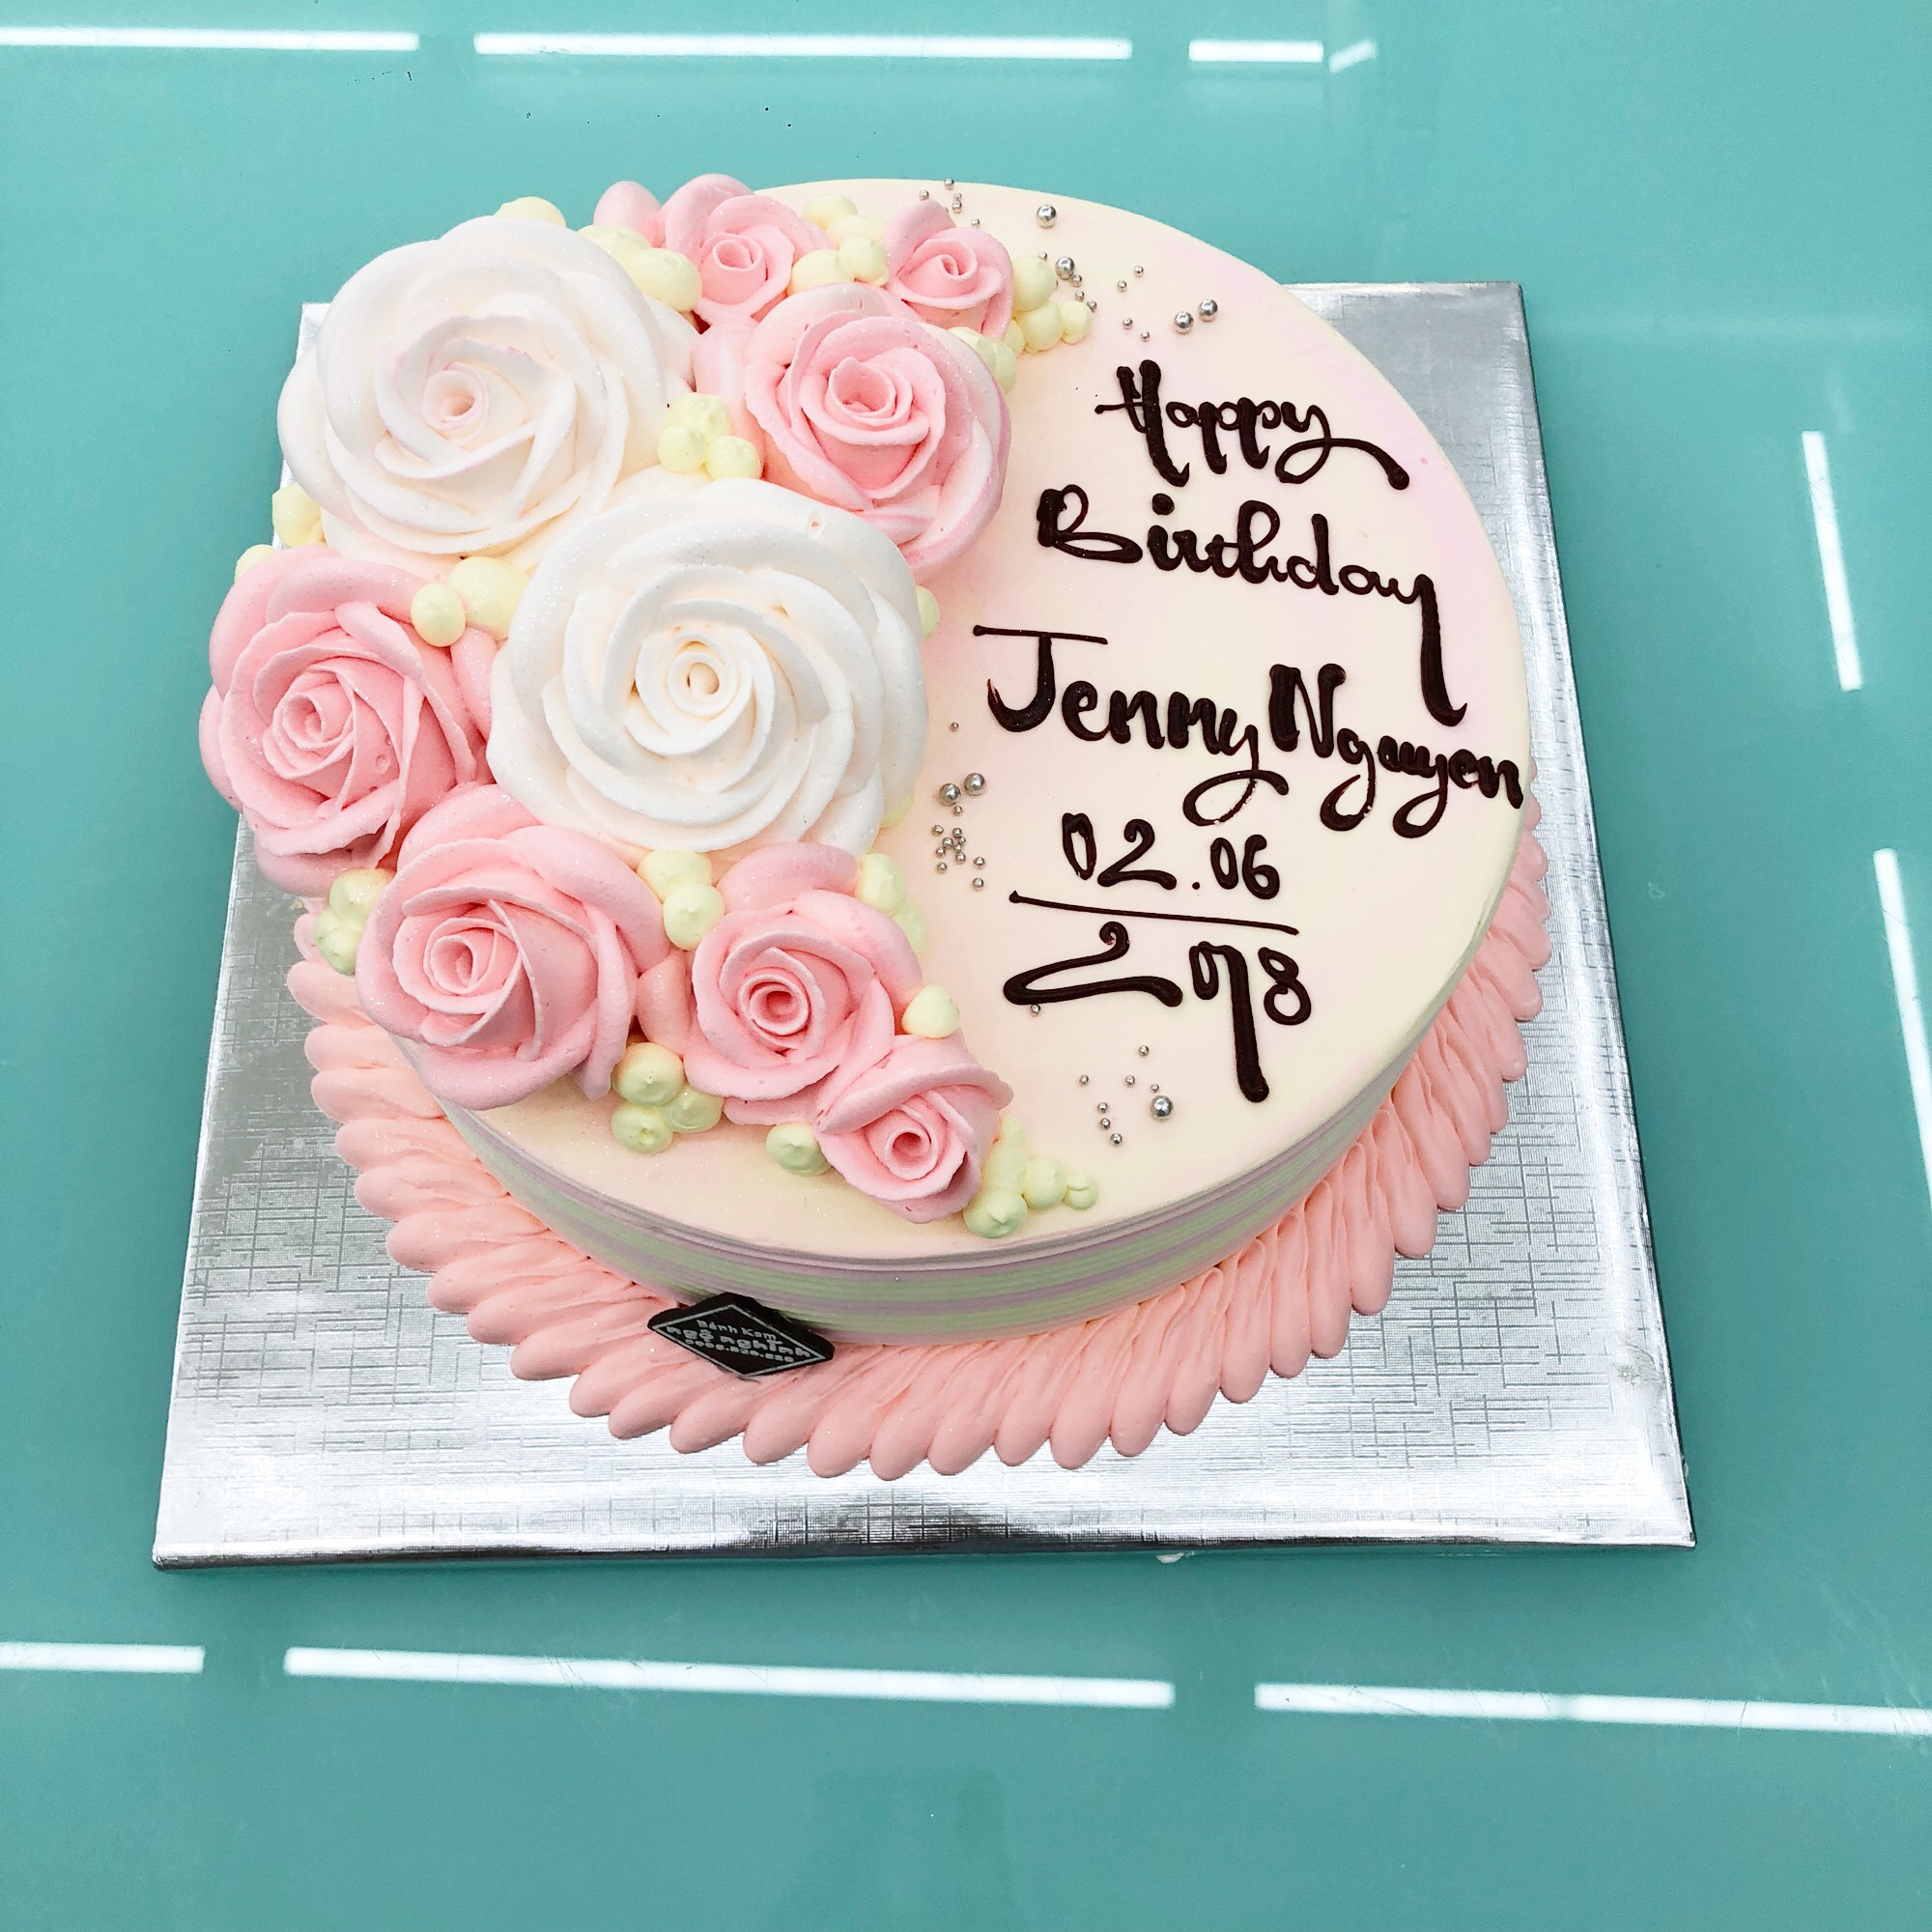 Happy
Birthday
Jenny Nguyen
02.06
2018
Bánh Kem
ngộ nghĩnh